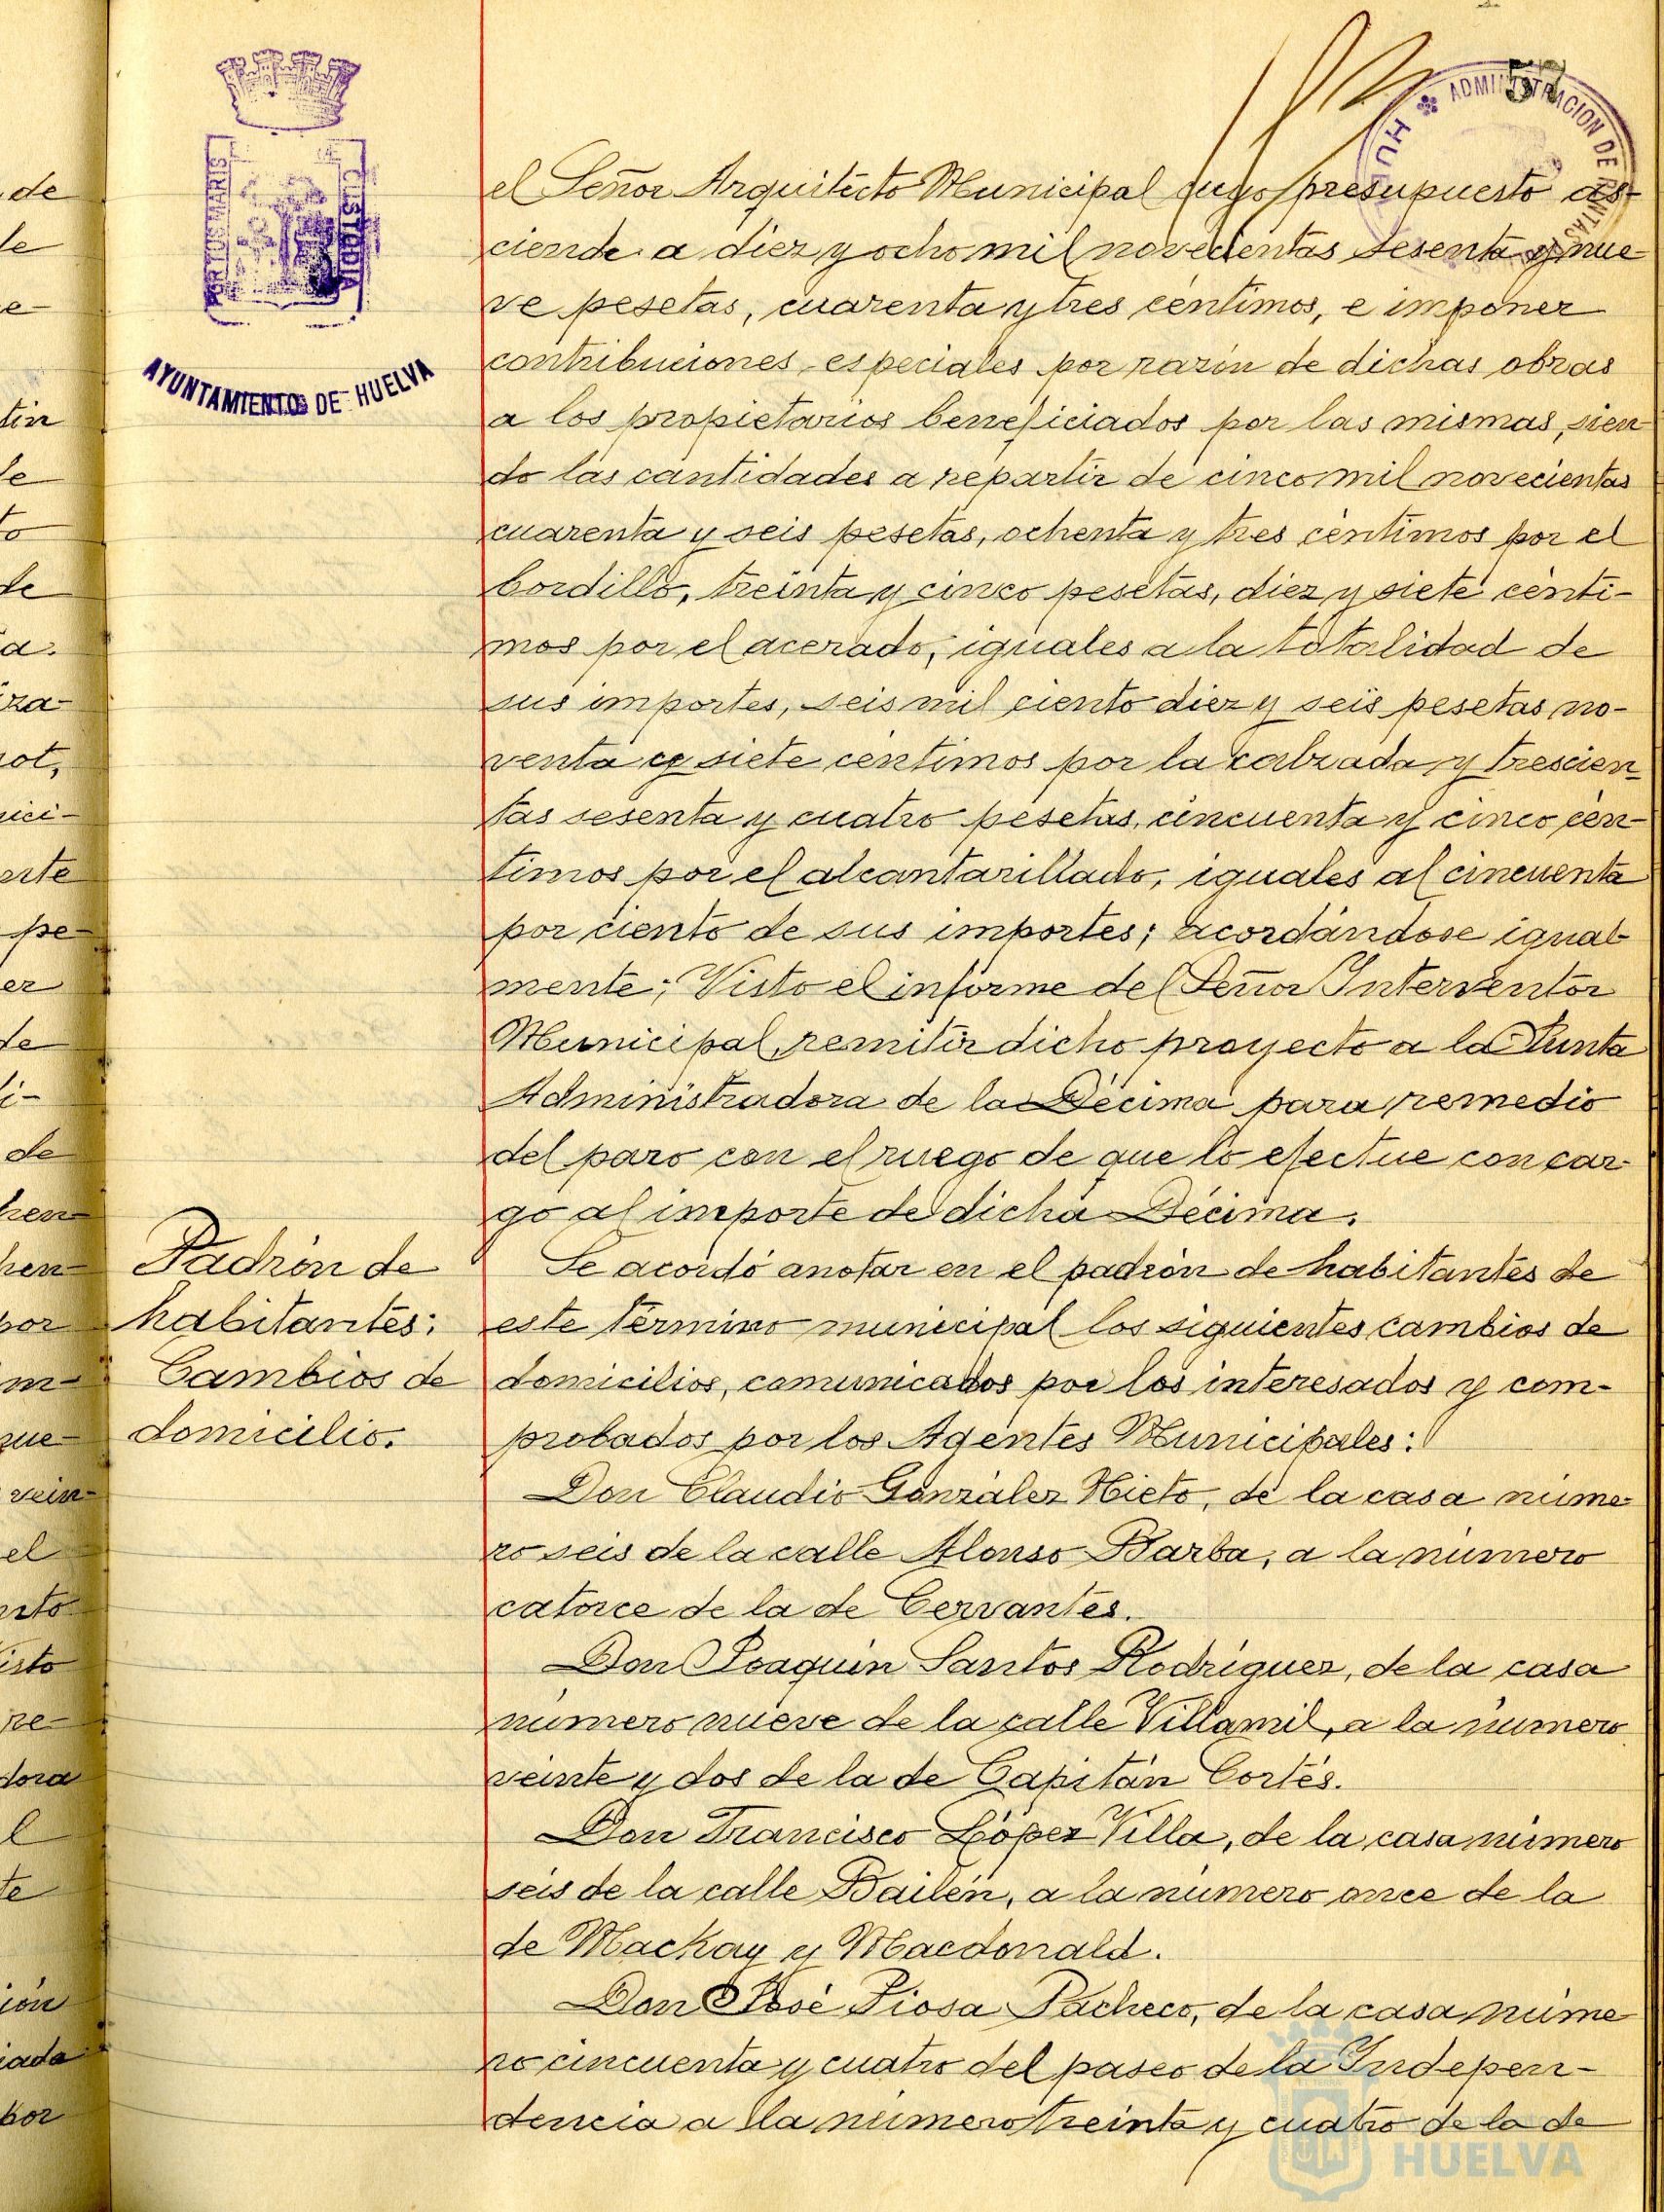 57
ADMINISTRACION DE RENTAS
HUELVA
PORTUS MARIS
CUSTODIA
AYUNTAMIENTO DE HUELVA
el Señor Arquitecto Municipal cuyo presupuesto as-
ciende a diez y ocho mil novecientas sesenta y nue-
ve pesetas, cuarenta y tres céntimos, e imponer
contribuciones especiales por razón de dichas obras
a los propietarios beneficiados por las mismas, sien
do las cantidades a repartir de cinco mil novecientas
cuarenta y seis pesetas, ochenta y tres céntimos por el
bordillo, treinta y cinco pesetas, diez y siete cénti-
mos por el acerado, iguales a la totalidad de
sus importes, seis mil ciento diez y seis pesetas no-
venta y siete céntimos por la calzada y trescien
tas sesenta y cuatro pesetas, cincuenta y cinco cén-
timos por el alcantarillado, iguales al cincuenta
por ciento de sus importes; acordándose igual-
mente; Visto el informe del Señor Interventor
Municipal, remitir dicho proyecto a la Junta
Administradora de la Décima para remedio
del paro con el ruego de que lo efectue con car-
go al importe de dicha Décima.
Padrón de
habitantes:
Cambios de
domicilio.
Se acordó anotar en el padrón de habitantes de
este término municipal los siguientes cambios de
domicilios, comunicados por los interesados y com-
probados por los Agentes Municipales:
Don Claudio González Nieto, de la casa núme-
ro seis de la calle Alonso Barba, a la número
catorce de la de Cervantes.
Don Joaquin Santos Rodríguez, de la casa
número nueve de la calle Villamil, a la número
veinte y dos de la de Capitán Cortés.
Don Francisco López Villa, de la casa número
seis de la calle Bailén, a la número once de la
de Mackay y Macdonald.
Don José Piosa Pacheco, de la casa núme-
ro cincuenta y cuatro del paseo de la Indepen-
dencia a la número treinta y cuatro de la de
HUELVA